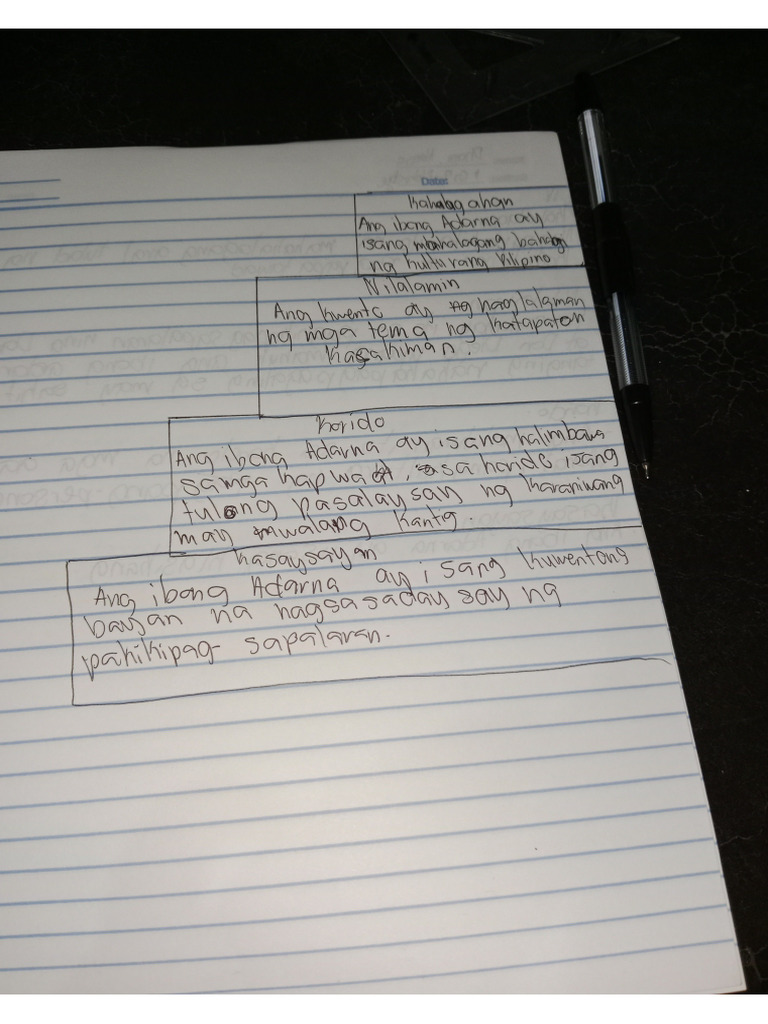 Date:
Kahalagahan
Ang ibong Adarna ay
isang mahalagang bahagi
ng kulturang Pilipino
Nilalamin
Ang kwento ay naglalaman
ng mga tema ng katapatan
kasakiman.
Korido
Ang ibong Adarna ay isang halimbawa
sa mga kapwa, sa koride isang
tulang pasalaysay ng karaniwang
may walang kantig.
Kasaysayan
Ang ibong Adarna ay isang kuwentong
bayan na nagsasadaysay ng
pakikipag-sapalaran.